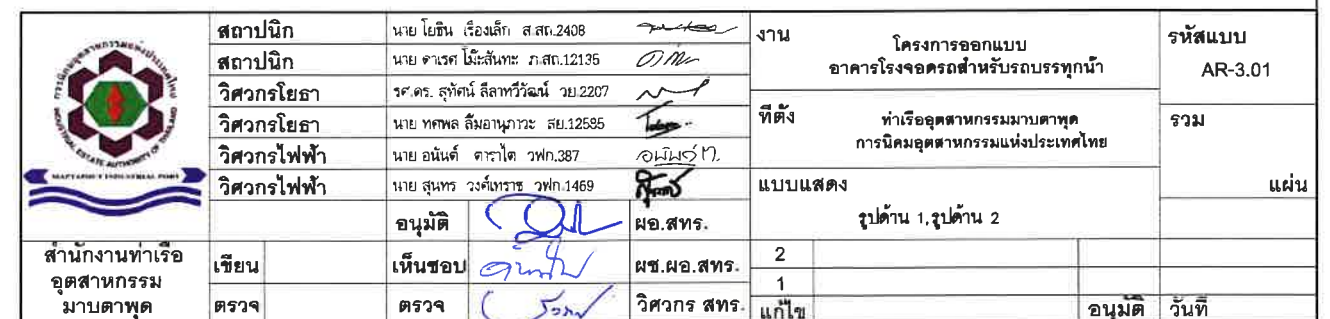 การนิคมอุตสาหกรรมแห่งประเทศไทย
INDUSTRIAL ESTATE AUTHORITY OF THAILAND
MAPTAPHUT INDUSTRIAL PORT
สำนักงานท่าเรือ
อุตสาหกรรม
มาบตาพุด
สถาปนิก นาย โยธิน เรืองเล็ก ส.สถ.2408
สถาปนิก นาย ดาเรศ โม๊ะสันทะ ภ.สถ.12135
วิศวกรโยธา รศ.ดร. สุทัศน์ ลีลาทวีวัฒน์ วย.2207
วิศวกรโยธา นาย ทศพล ลิ้มอานุภาวะ สย.12585
วิศวกรไฟฟ้า นาย อนันต์ ดาราไต วฟก.387 อนันต์ ด.
วิศวกรไฟฟ้า นาย สุนทร วงศ์เทราช วฟก.1469
อนุมัติ ผอ.สทร.
เขียน เห็นชอบ ผช.ผอ.สทร.
ตรวจ ตรวจ วิศวกร สทร.
งาน โครงการออกแบบ
อาคารโรงจอดรถสำหรับรถบรรทุกน้ำ
ที่ตั้ง ท่าเรืออุตสาหกรรมมาบตาพุด
การนิคมอุตสาหกรรมแห่งประเทศไทย
แบบแสดง
รูปด้าน 1,รูปด้าน 2
2
1
แก้ไข อนุมัติ วันที่
รหัสแบบ
AR-3.01
รวม
แผ่น